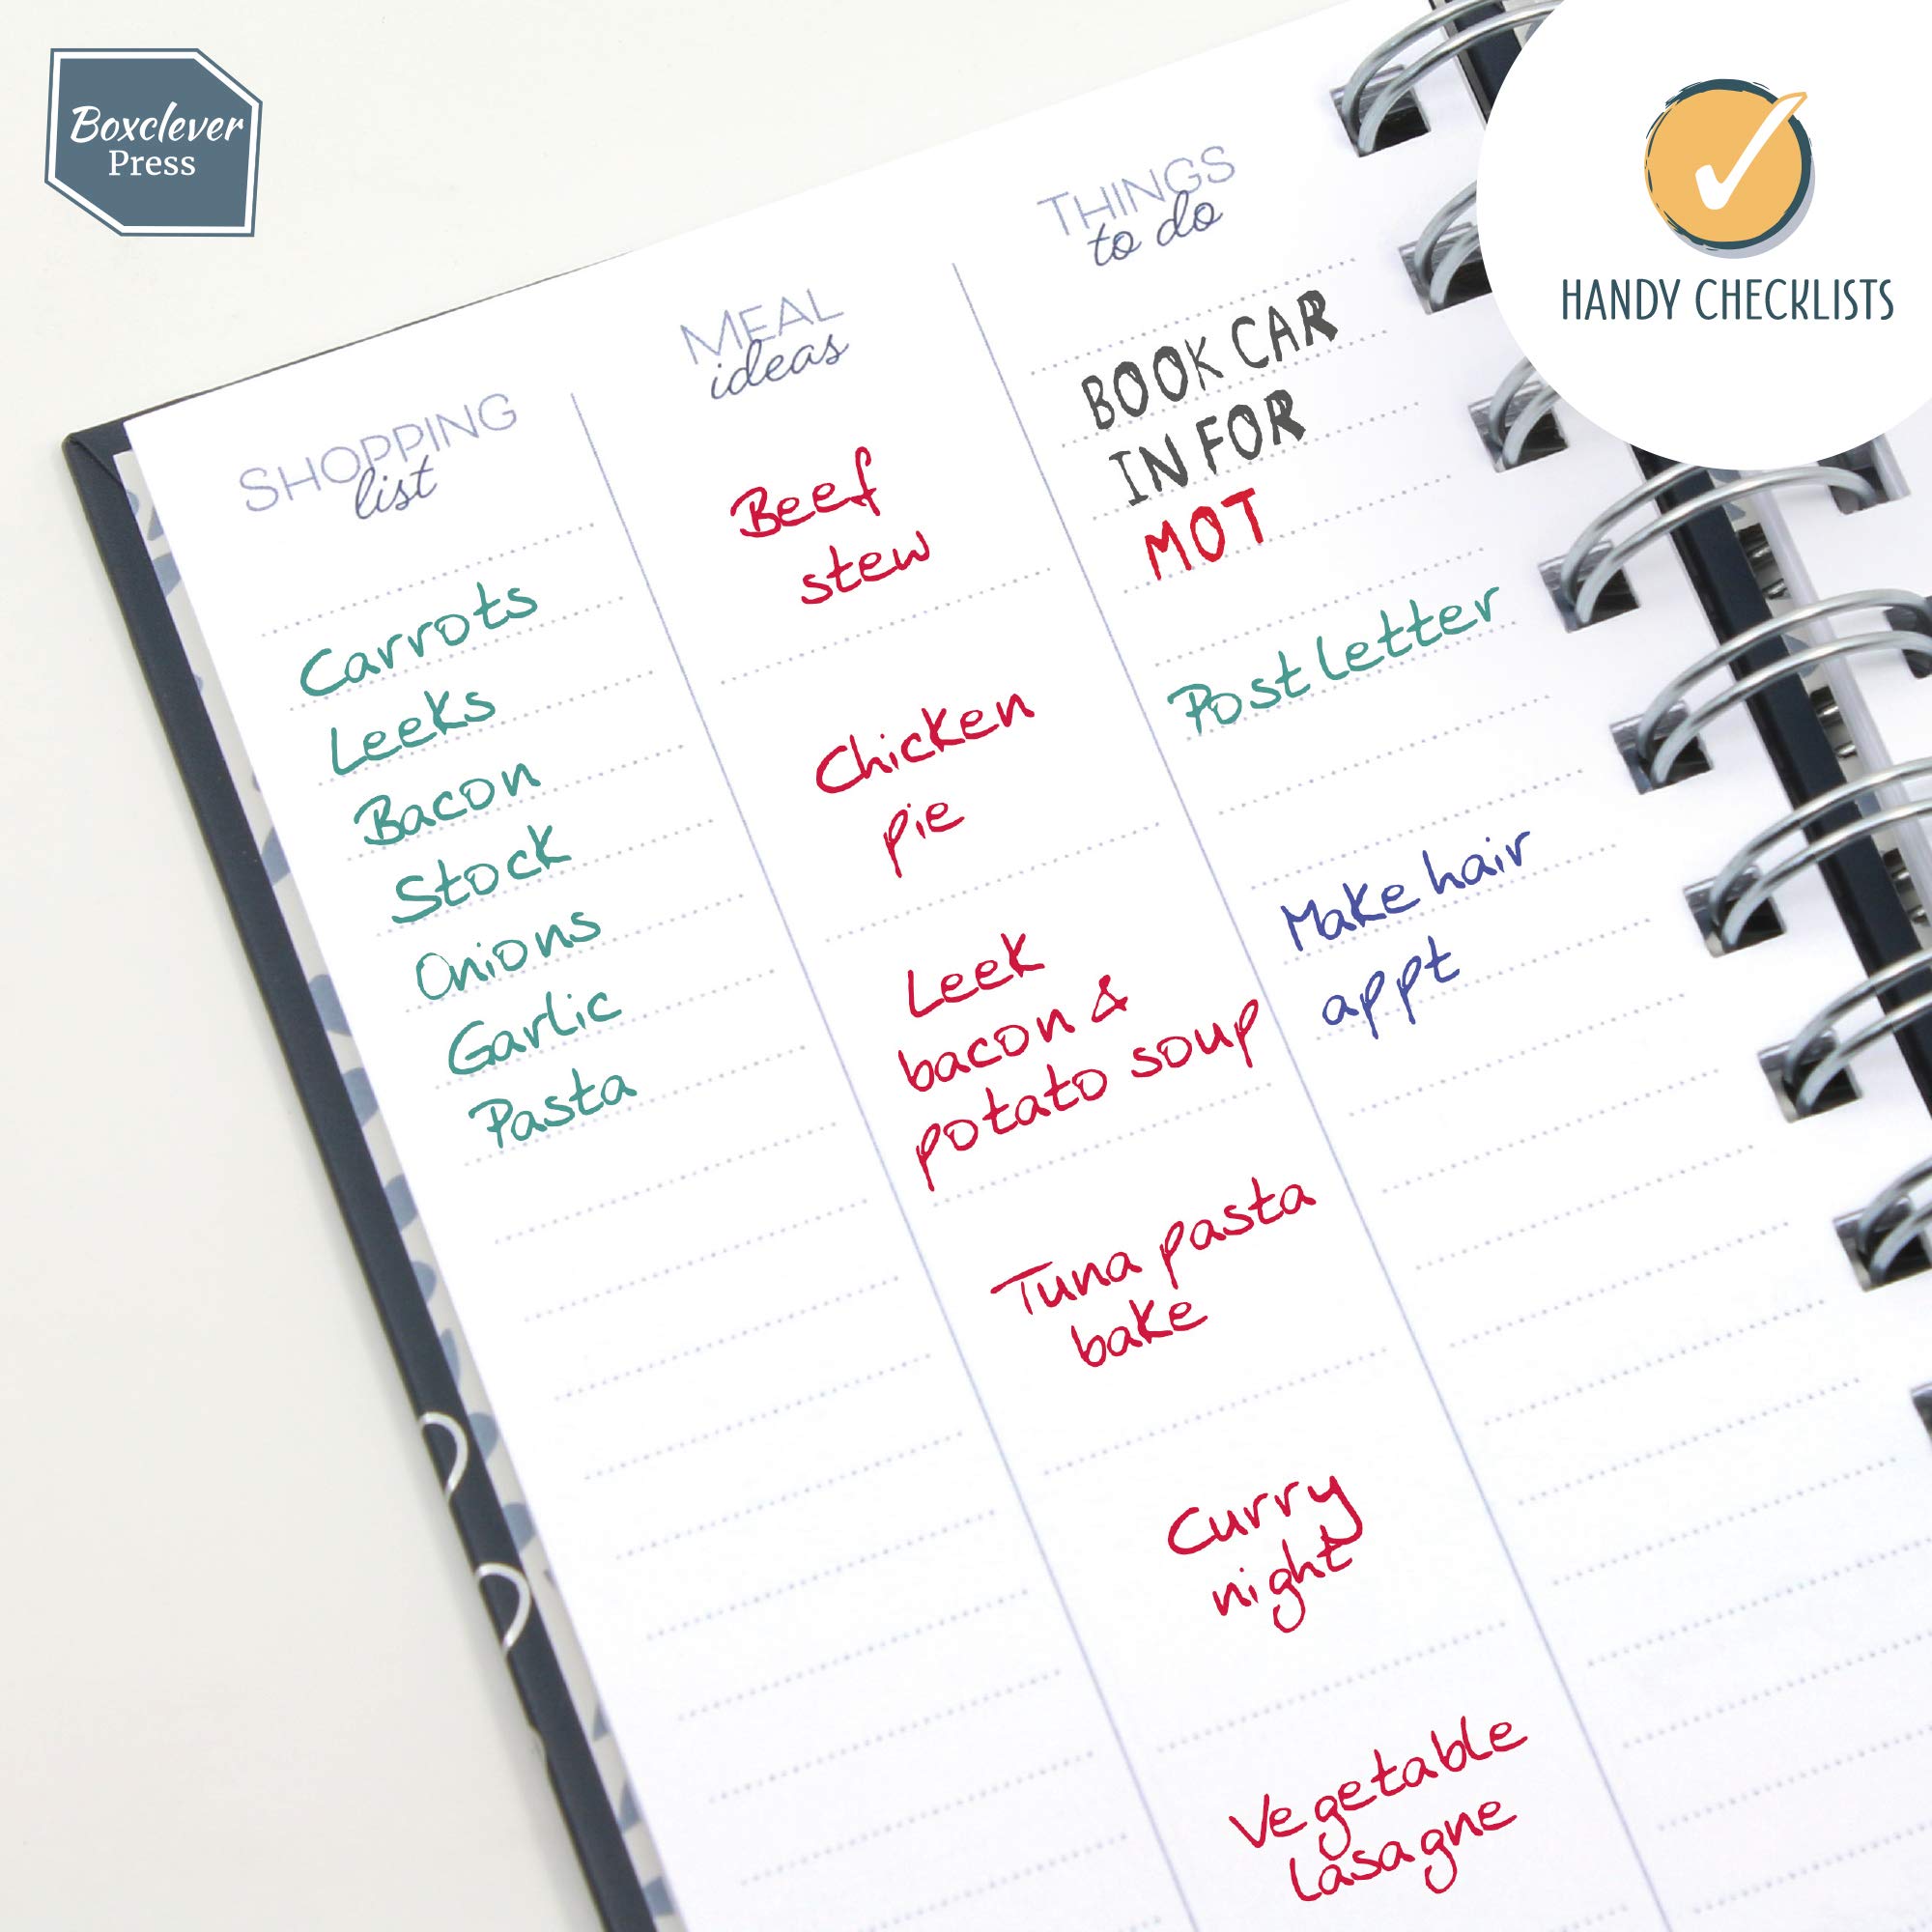 Boxclever
Press
HANDY CHECKLISTS
SHOPPING
list
Carrots
Leeks
Bacon
Stock
Onions
Garlic
Pasta
MEAL
ideas
Beef
stew
Chicken
pie
Leek
bacon &
potato soup
Tuna pasta
bake
Curry
night
Vegetable
lasagne
THINGS
to do
BOOK CAR
IN FOR
MOT
Post letter
Make hair
appt